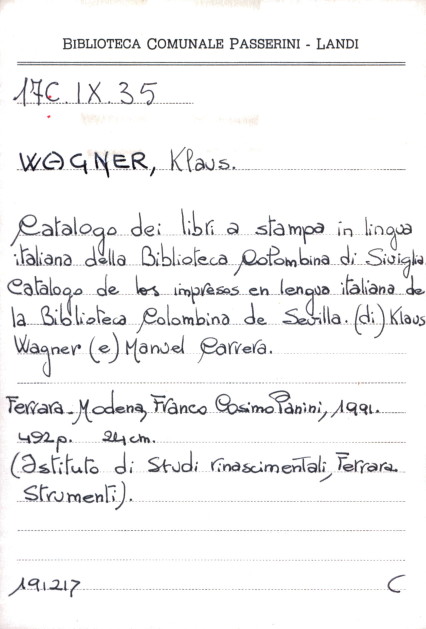 BIBLIOTECA COMUNALE PASSERINI - LANDI
17C.IX.35
WAGNER, Klaus.
Catalogo dei libri a stampa in lingua
italiana della Biblioteca Colombina di Siviglia
Catàlogo de los impresos en lengua italiana de
la Biblioteca Colombina de Sevilla. (di) Klaus
Wagner (e) Manuel Carrera.
Ferrara-Modena, Franco Cosimo Panini, 1991.
492p. 24cm.
(Istituto di Studi rinascimentali, Ferrara
Strumenti).
191217 C